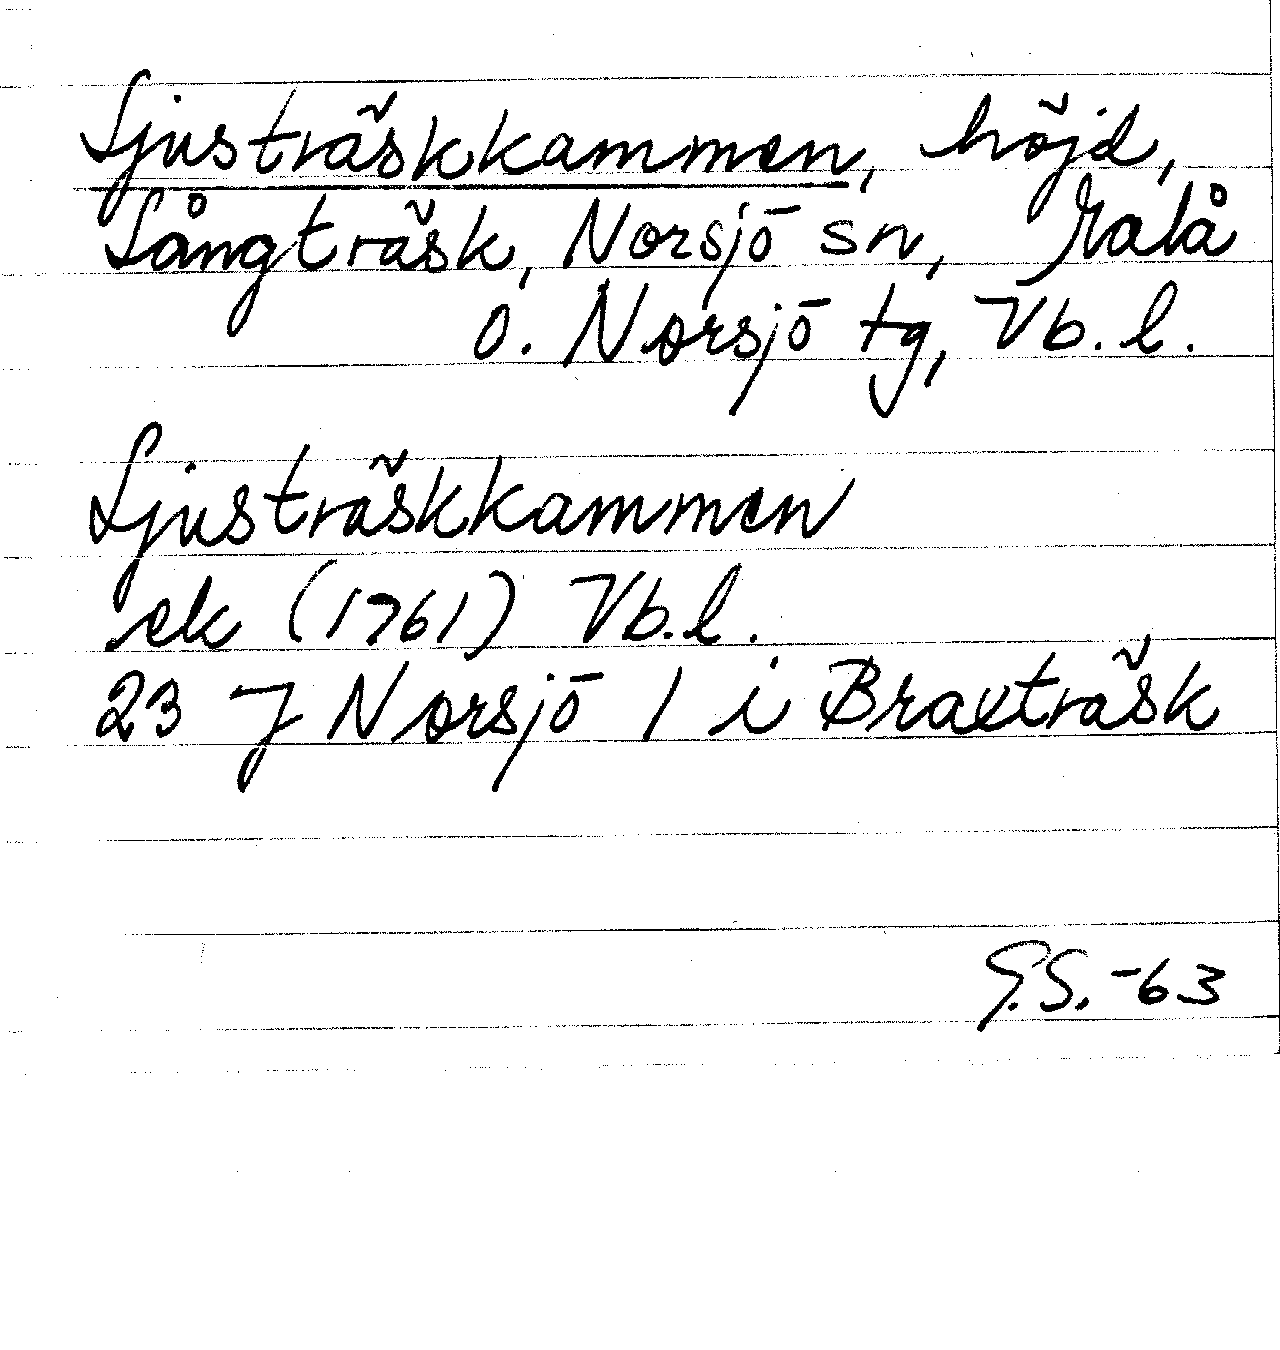 Ljusträskkammen, höjd,
Långträsk, Norsjö sn, Malå
o. Norsjö tg, Vb. l.
Ljusträskkammen
ek (1761) Vb.l.
23 J Norsjö 1 i Braxträsk
G.S. -63